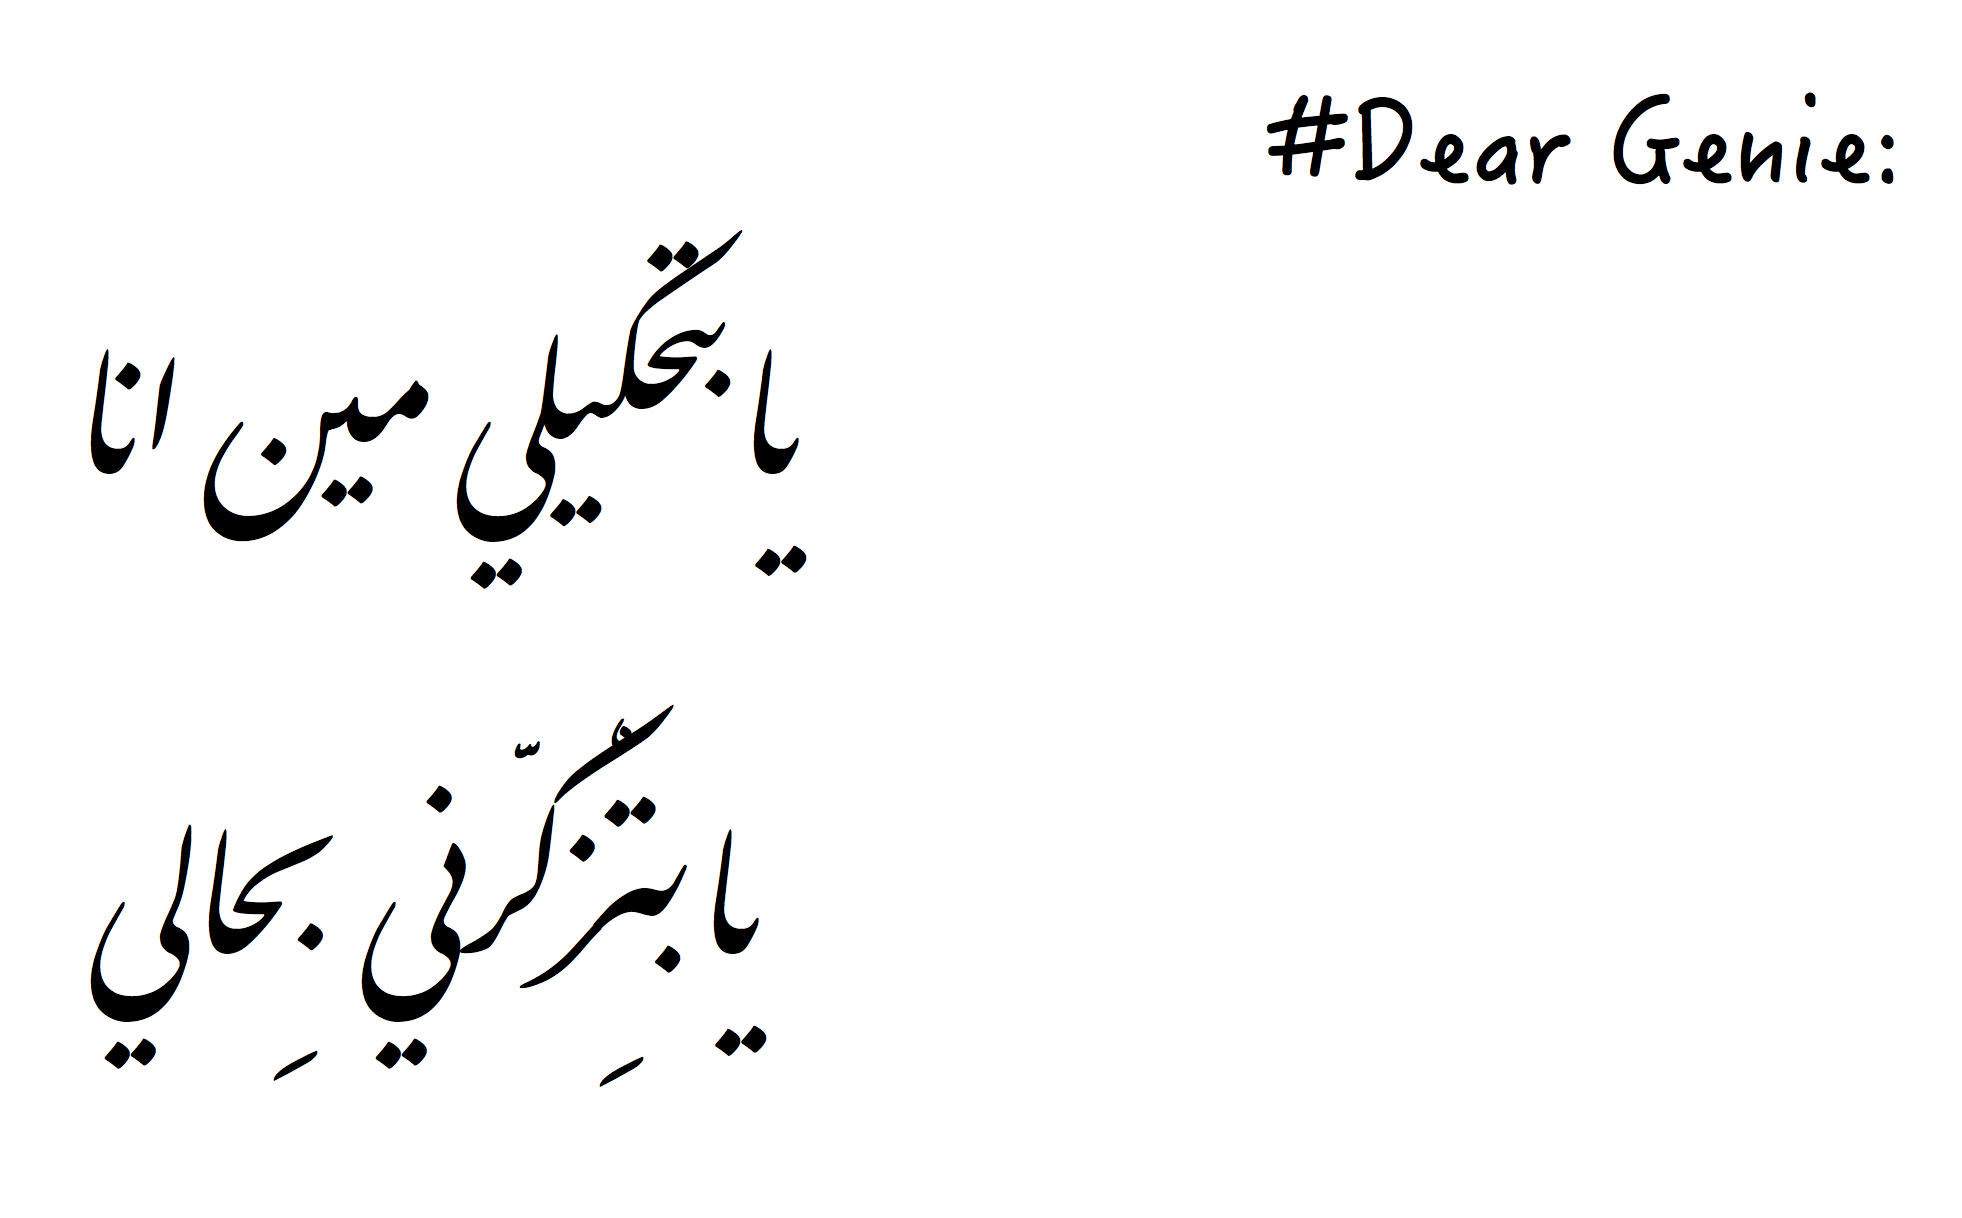 #Dear Genie:
يا بتحكيلي مين انا
يا بتِزْكّرني بِحالي